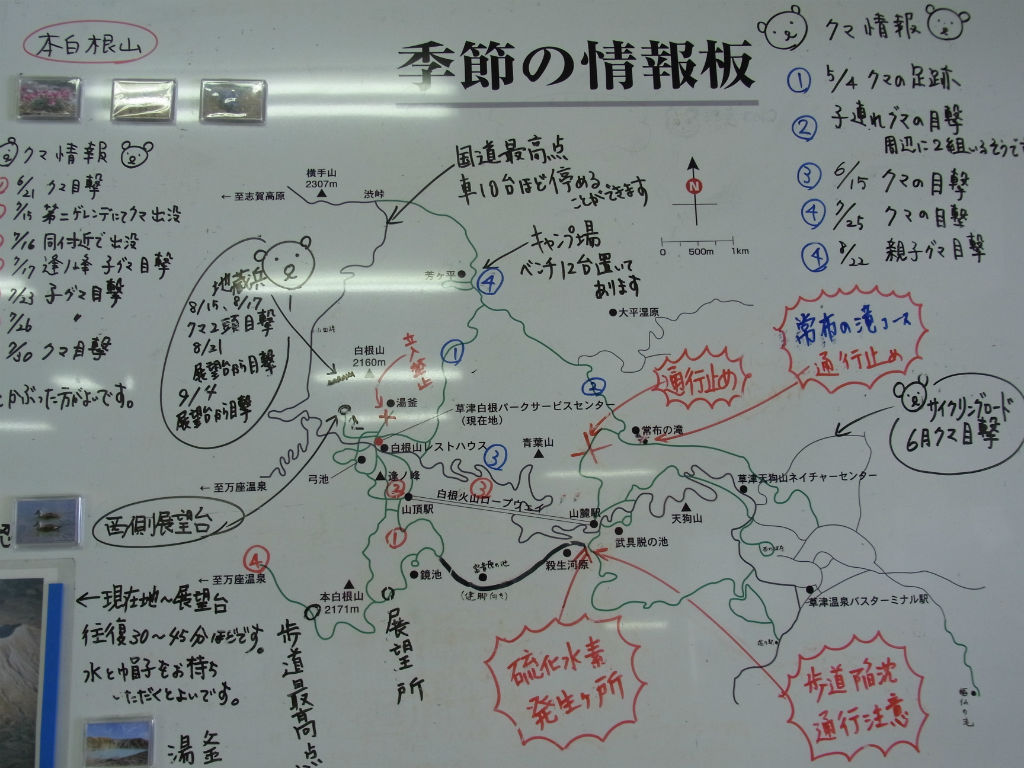 本白根山
季節の情報板
クマ情報
6/21 クマ目撃
7/15 第二ゲレンデにてクマ出没
7/16 同付近で出没
7/17 逢ノ峰 子グマ目撃
7/23 子グマ目撃
7/26 〃
7/30 クマ目撃
かぶった方がよいです。
クマ情報
① 5/4 クマの足跡
② 子連れグマの目撃
周辺に2組いるそうです
③ 6/15 クマの目撃
④ 7/25 クマの目撃
④ 8/22 親子グマ目撃
国道最高点
車10台ほど停める
ことができます
横手山
2307m
渋峠
←至志賀高原
N
0 500m 1km
キャンプ場
ベンチ12台置いて
あります
芳ヶ平
④
大平湿原
地蔵浜
8/15、8/17
クマ2頭目撃
8/21
展望台から目撃
9/4
展望台から目撃
白根山
2160m
立入禁止
湯釜
①
②
常布の滝コース
通行止め
通行止め
サイクリングロード
6月クマ目撃
草津白根パークサービスセンター
(現在地)
白根山レストハウス
青葉山
常布の滝
③
弓池
逢ノ峰
←至万座温泉
②
③
白根火山ロープウェイ
山頂駅
山麓駅
草津天狗山ネイチャーセンター
天狗山
武具脱の池
西側展望台
①
④
←至万座温泉
本白根山
2171m
鏡池
(健脚向き)
殺生河原
草津温泉バスターミナル駅
←現在地〜展望台
往復30〜45分ほどです。
水と帽子をお持ち
いただくとよいです。
歩道最高点
展望所
硫化水素
発生ヶ所
歩道陥没
通行注意
湯釜